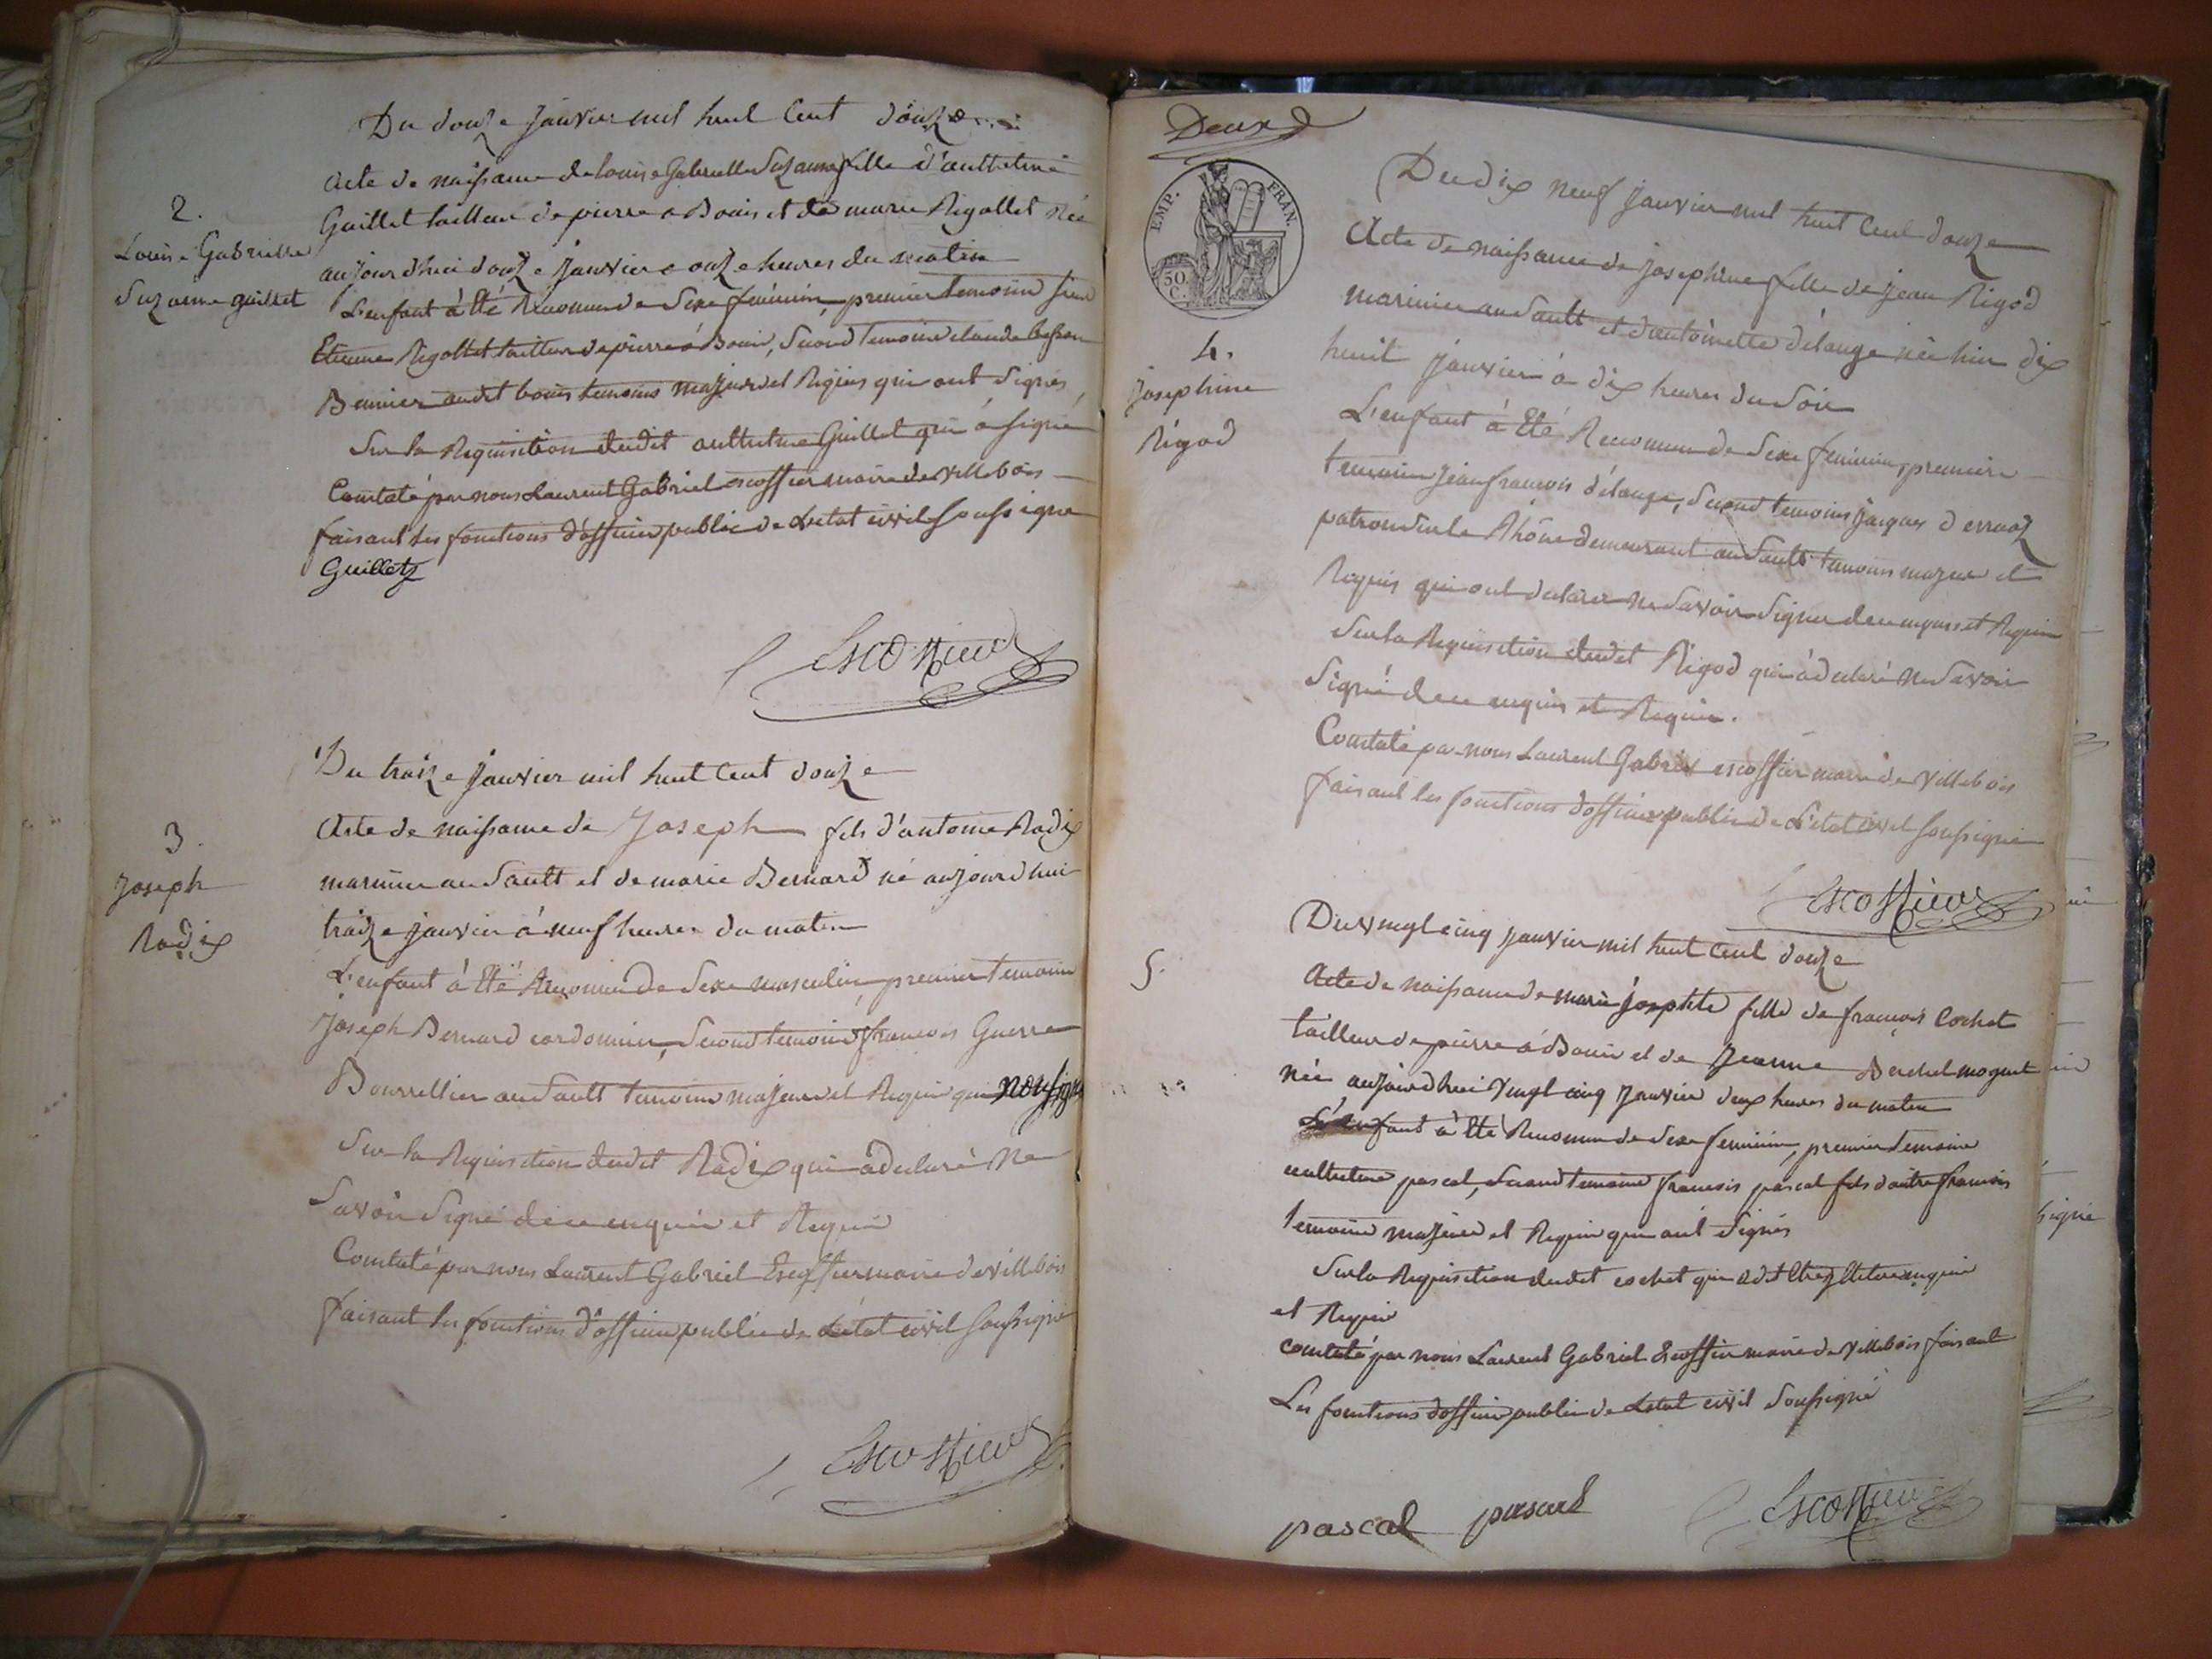 Du douze janvier mil huit Cent douze
Acte de naissance de louise Gabrielle Suzanne fille d'anthelme
Guillet tailleur de pierre a Bouis et de marie Rigollet née
aujourdhui douze janvier a onze heures du matin
L'enfant à été Reconnu de Sexe féminin, premier temoin
Etienne Rigollet tailleur de pierre à Bouis, Second temoin claude besson
audit bouis temoins majeur et Requis qui ont Signés
Sur la Requisition dudit anthelme Guillet qui à signé
Constaté par nous Laurent Gabriel escoffier maire de villebois
faisant les fonctions d'officier public de L'etat civil soussigné
Guillet
2.
Louise Gabrielle
Suzanne guillet
Escoffier
Du traize janvier mil huit Cent douze
Acte de naissance de Joseph fils d'antoine Radix
marinier au Sault et de marie Bernard né aujourdhui
traize janvier à neuf heures du matin
L'enfant à été Reconnu de Sexe masculin, premier temoin
Joseph Bernard cordonnier, Second temoin francois Guerre
Bourrellier au Sault temoins majeur et Requis qui
Sur la Requisition dudit Radix qui à declaré ne
Savoir Signé de ce enquis et Requis
Constaté par nous Laurent Gabriel Escoffier maire de villebois
faisant les fonctions d'officier public de L'état civil soussigné
3.
Joseph
Radix
Escoffier
Deux
EMP. FRAN.
50
C.
Du dix neuf janvier mil huit Cent douze
Acte de naissance de josephine fille de jean Rigod
marinier au Sault et d'antoinette délange née hier dix
huit janvier à dix heures du Soir
L'enfant à été Reconnu de Sexe féminin, premier
temoin jean francois délange, Second temoins jacques derruaz
patron sur le Rhône demeurant au Sault temoins majeur et
Requis qui ont declarer ne Savoir Signer de ce enquis et Requis
Sur la Requisition dudit Rigod qui à declaré ne Savoir
Signé de ce enquis et Requis.
Constaté par nous Laurent Gabriel escoffier maire de villebois
faisant les fonctions d'officier public de L'état civil soussigné
4.
josephine
Rigod
Escoffier
Du vingt cinq janvier mil huit Cent douze
Acte de naissance de marie josephte fille de francois Cochet
tailleur de pierre à Bouis et de Jeanne
née aujourdhui vingt cinq janvier deux heures du matin
L'enfant à été Reconnu de Sexe feminin, premier temoin
anthelme pascal, Second temoin francois pascal fils d'autre francois
temoins majeur et Requis qui ont Signés
Sur la Requisition dudit cochet qui
et Requis
constaté par nous Laurent Gabriel Escoffier maire de villebois faisant
Les fonctions d'officier public de L'etat civil Soussigné
5.
pascal pascal Escoffier